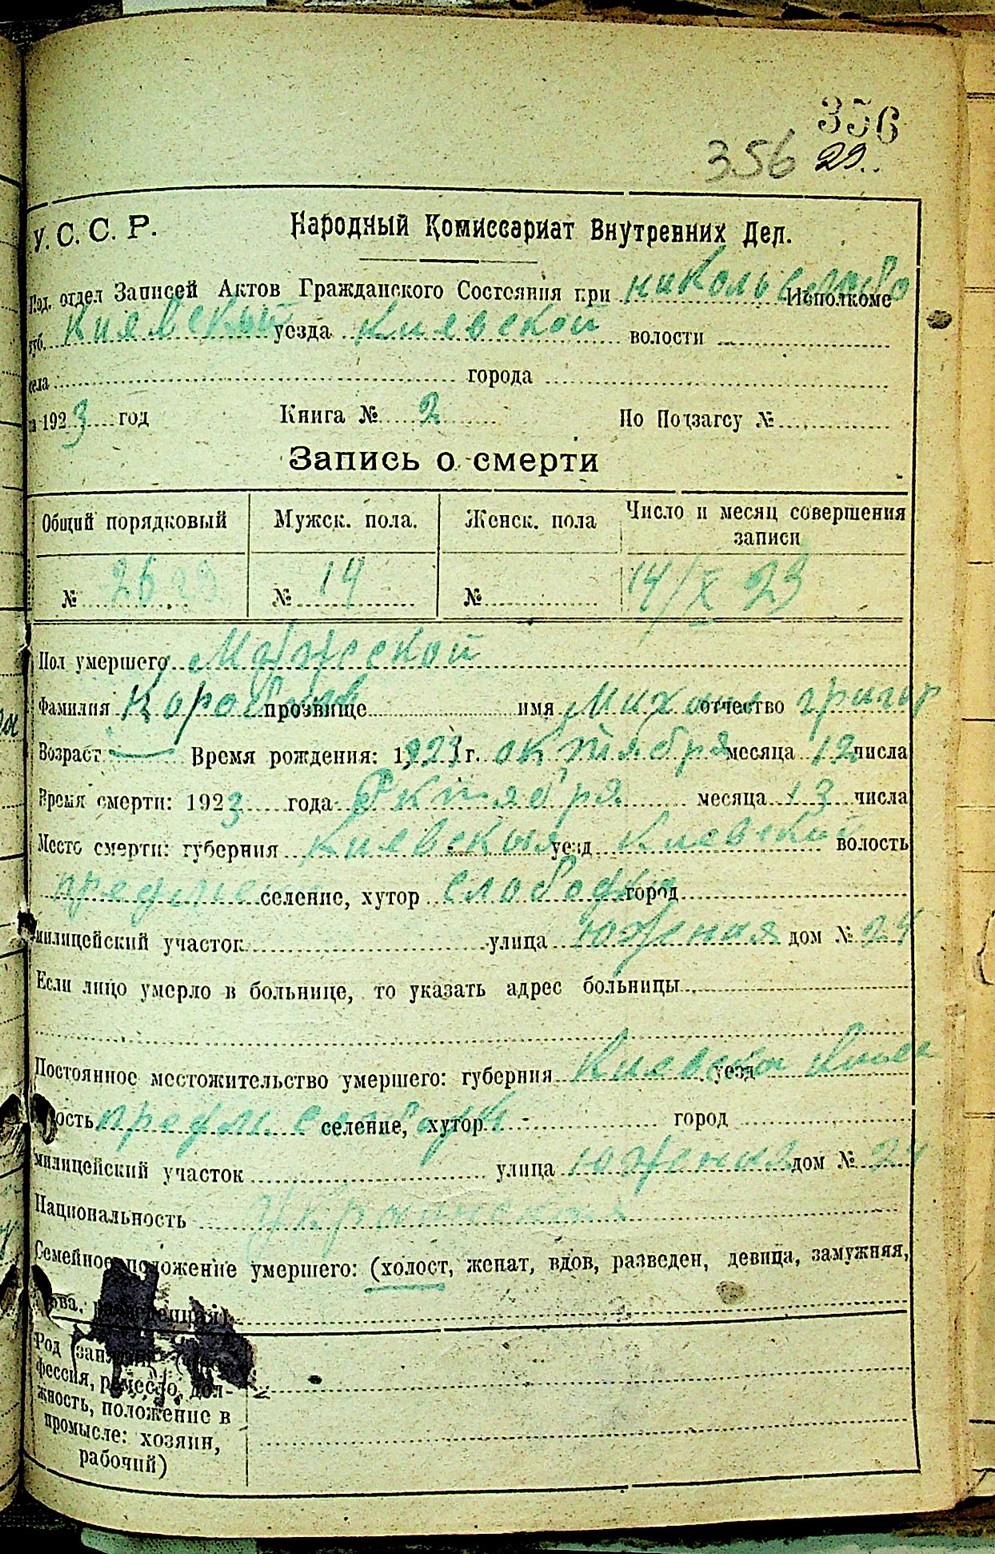 356
356 29..
У. С. С. Р. Народный Комиссариат Внутренних Дел.
Под. отдел Записей Актов Гражданского Состояния при никольслобо Исполкоме
губ. Киевский уезда Киевской волости
села города
за 1923 год Книга № 2 По Подзагсу №
Запись о смерти
Общий порядковый Мужск. пола. Женск. пола Число и месяц совершения
записи
№ 26 29 № 14 № 14/X 23
Пол умершего Мужеской
Фамилия прозвище имя Михаил отчество григор
Возраст — Время рождения: 1923 г. октября месяца 12 числа
Время смерти: 1923 года Октября месяца 13 числа
Место смерти: губерния Киевския уезд Киевский волость
селение, хутор слободка город
милицейский участок улица южения дом № 24
Если лицо умерло в больнице, то указать адрес больницы
Постоянное местожительство умершего: губерния Киевска уезд Киев
волость предм слободк селение, хутор город
милицейский участок улица южения дом № 24
Национальность Украинская
Семейное положение умершего: (холост, женат, вдов, разведен, девица, замужняя,
вдова, разведенная)
Род занятий
фессия, ремесло, дол-
жность, положение в
промысле: хозяин,
рабочий)